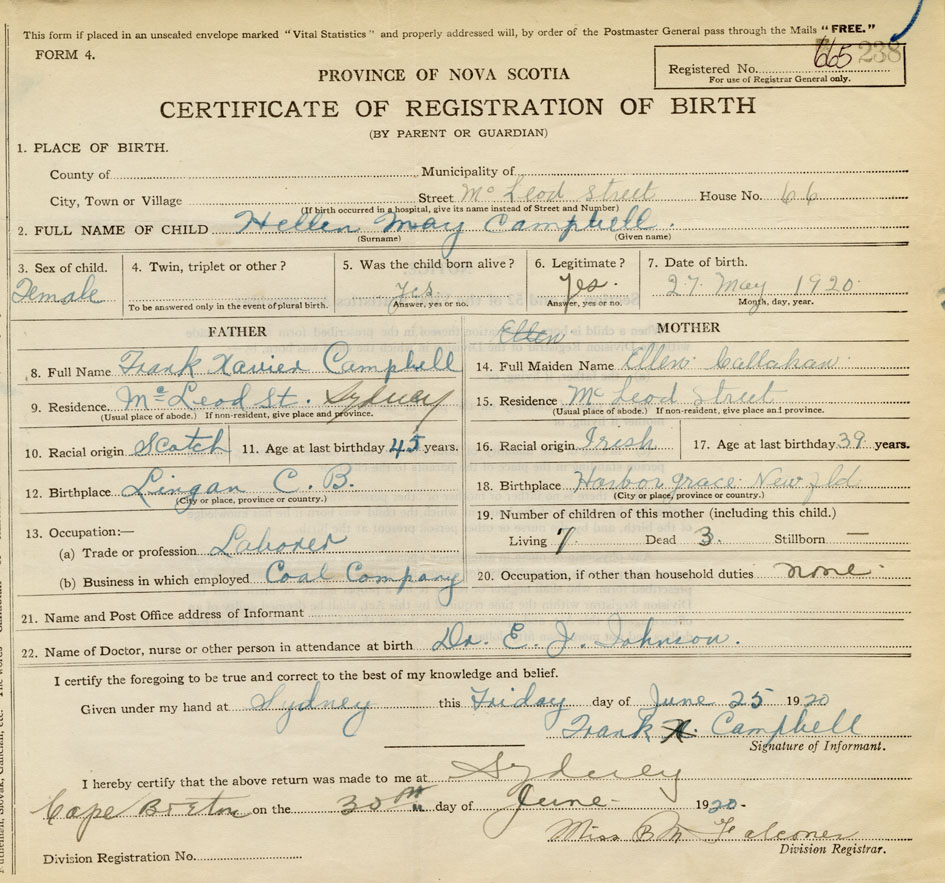 This form if placed in an unsealed envelope marked "Vital Statistics" and properly addressed will, by order of the Postmaster General pass through the Mails "FREE."
FORM 4.
Registered No. 665 238
For use of Registrar General only.
PROVINCE OF NOVA SCOTIA
CERTIFICATE OF REGISTRATION OF BIRTH
(BY PARENT OR GUARDIAN)
1. PLACE OF BIRTH.
County of Municipality of
City, Town or Village Street Mc Leod Street House No. 66
(If birth occurred in a hospital, give its name instead of Street and Number)
2. FULL NAME OF CHILD Hellen May Campbell.
(Surname) (Given name)
3. Sex of child. 4. Twin, triplet or other? 5. Was the child born alive? 6. Legitimate? 7. Date of birth.
Female yes. yes. 27 May 1920
To be answered only in the event of plural birth. Answer, yes or no. Answer, yes or no. Month, day, year.
FATHER
8. Full Name Frank Xavier Campbell
9. Residence. Mc Leod St. Sydney
(Usual place of abode.) If non-resident, give place and province.
10. Racial origin Scotch 11. Age at last birthday 45 years.
12. Birthplace Lingan C. B.
(City or place, province or country.)
13. Occupation:—
(a) Trade or profession Laborer
(b) Business in which employed Coal Company
Ellen MOTHER
14. Full Maiden Name Ellen Callahan
15. Residence Mc Leod Street
(Usual place of abode.) If non-resident, give place and province.
16. Racial origin Irish 17. Age at last birthday 39 years.
18. Birthplace Harbor Grace Newfld.
(City or place, province or country.)
19. Number of children of this mother (including this child.)
Living 7. Dead 3. Stillborn —
20. Occupation, if other than household duties none.
21. Name and Post Office address of Informant
22. Name of Doctor, nurse or other person in attendance at birth Dr. E. J. Johnson.
I certify the foregoing to be true and correct to the best of my knowledge and belief.
Given under my hand at Sydney this Friday day of June 25 1920
Frank X. Campbell
Signature of Informant.
I hereby certify that the above return was made to me at Sydney
Cape Breton on the 30th day of June 1920.
Miss B. M. Falconer
Division Registrar.
Division Registration No.